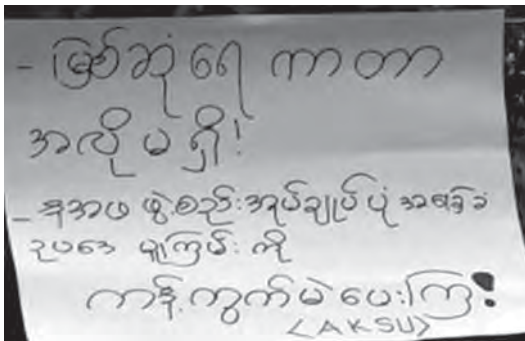 - မြစ်ဆုံရေ ကာတာ
အလိုမရှိ!
- နအဖ ဖွဲ့စည်းအုပ်ချုပ်ပုံ အခြေခံ
ဥပဒေ မူကြမ်းကို
ကန့်ကွက်မဲပေးကြ!
<AKSU>